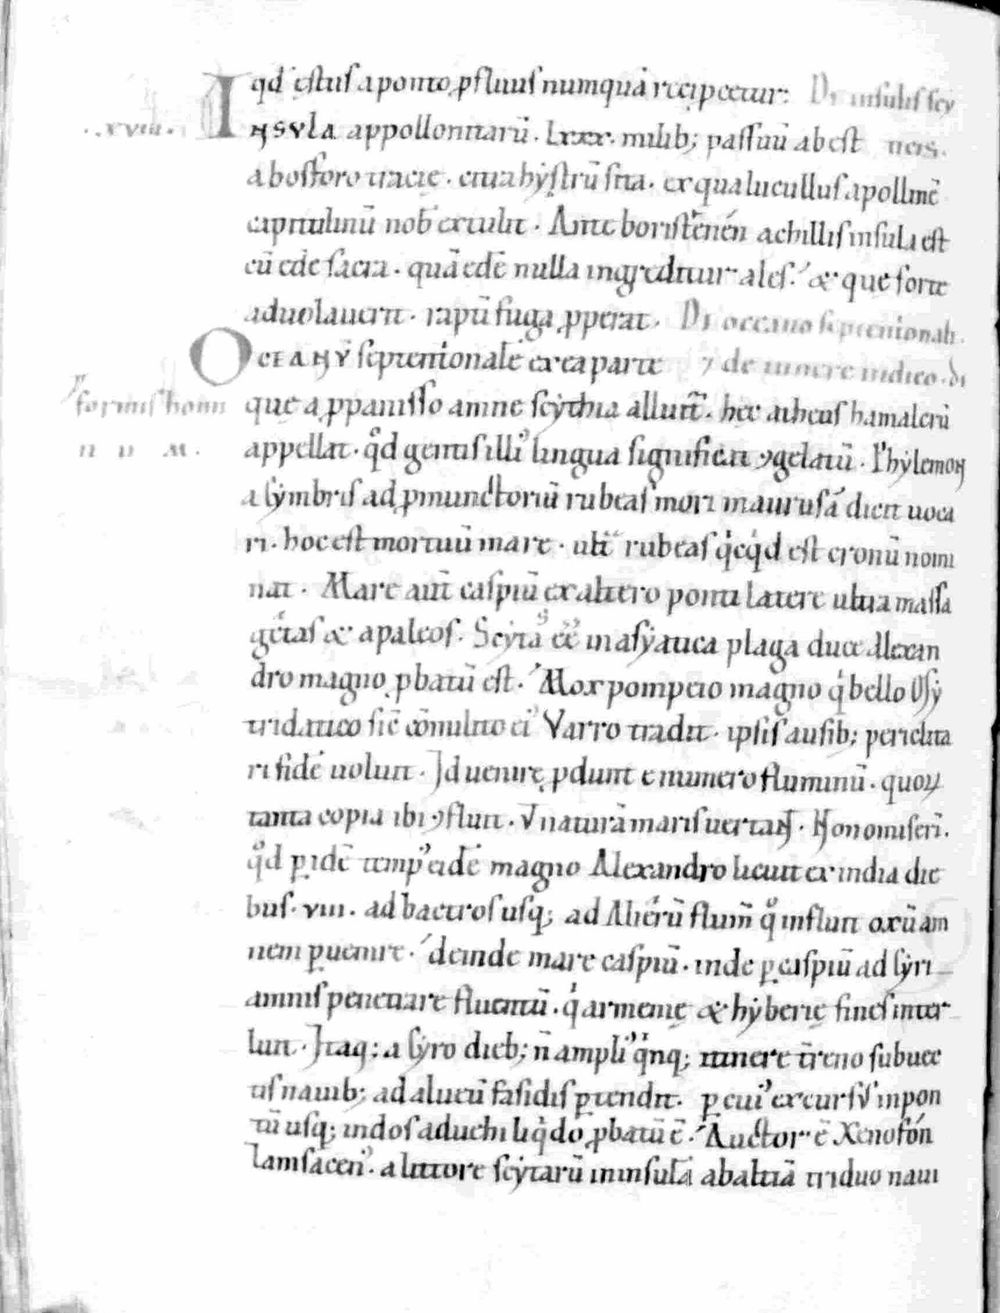 qd̄ estus a ponto ꝓfluus numquā recipeatur: De insulis scy
.xviii. INSVLA appollonitarū. lxxx. milib; passuū abest ticis.
a bosforo tracię. citra hystrū sita. ex qua lucullus apollinē
capitulinū nob̄ extulit. Ante boristenen achillis insula est
cū ede sacra. quā edē nulla ingreditur ales. & que forte
aduolauerit. raptī fuga ꝓperat. De occeano septentionali.
OCEANV̄ septentionalē ex ea parte ⁊ de itinere indico. di
formis homi que a ꝓpanisso amne scythia alluit̄. hec atheus hamalcrū
nu m. appellat. qd̄ gentis illi᾽ lingua significat ꝯgelatū. Phylemon
a symbris ad ꝓmunctoriū rubeas mori maurusā dicit uoca
ri. hoc est mortuū mare. ult̄ rubeas qͥcqͥd est cronū nomi
nat. Mare aut̄ caspiū ex altero ponti latere ultra massa
getas & apaleos. Scyta᷒ eē in asyatica plaga duce Alexan
dro magno ꝓbatū est. Mox pompeio magno qͥ bello
tridatico sic̄ cōmilito ei᾽ Varro tradit. ipsis ausib; periclita
ri fidē uoluit. Id uenire ꝓdunt e numero fluminū. quoꝝ
tanta copia ibi ꝯfluit. V naturā maris uertant. Non omiserī.
qd̄ ꝑ idē temp᾽ eidē magno Alexandro licuit ex india die
bus. viii. ad bactros usq; ad Aherū flum̄ qͦ influit oxū am
nem ꝑuenire. deinde mare caspiū. inde ꝑ caspiū ad syri
amnis penetrare fluentū. qͥ armenię & hyberię fines inter
luit. Itaq; a syro dieb; n̄ ampli᾽ qͥnq; itinere tr̄eno subuec
tis nauib; ad alueū fasidis ꝑtendit. ꝑ cui᾽ excursus in pon
tū usq; indos aduehi liqͥdo ꝓbatū ē. Auctor ē Xenofon
lamsacen᾽. a littore scytarū in insulā abaltiā triduo naui